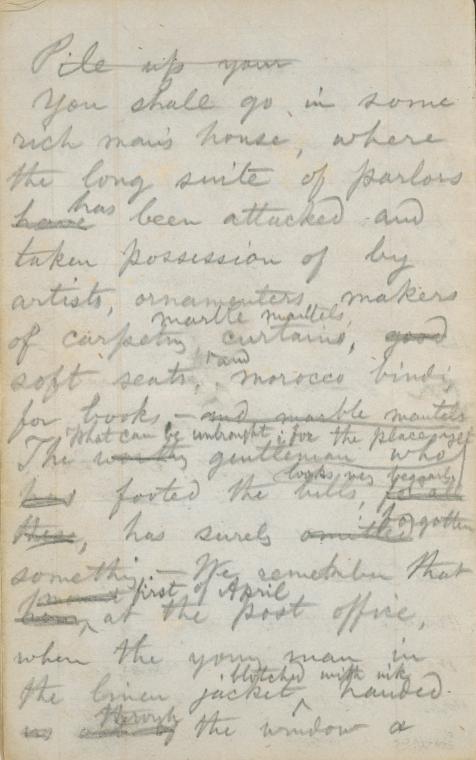 Pile up your
You shall go in some
rich man's house, where
the long suite of parlors
have has been attacked and
taken possession of by
artists, ornamenters, makers
marble mantels,
of carpets, curtains, good
soft seats, and morocco bindg
for books, — and marble mantels
What can be unbought; for the place yet
The gentleman who
looks very beggarly
has footed the bills, for all
these, has surely omitted forgotten
something — We remember that
first of April
at the post office,
when the young man in
blotched with ink
the linen jacket handed
through
the window a